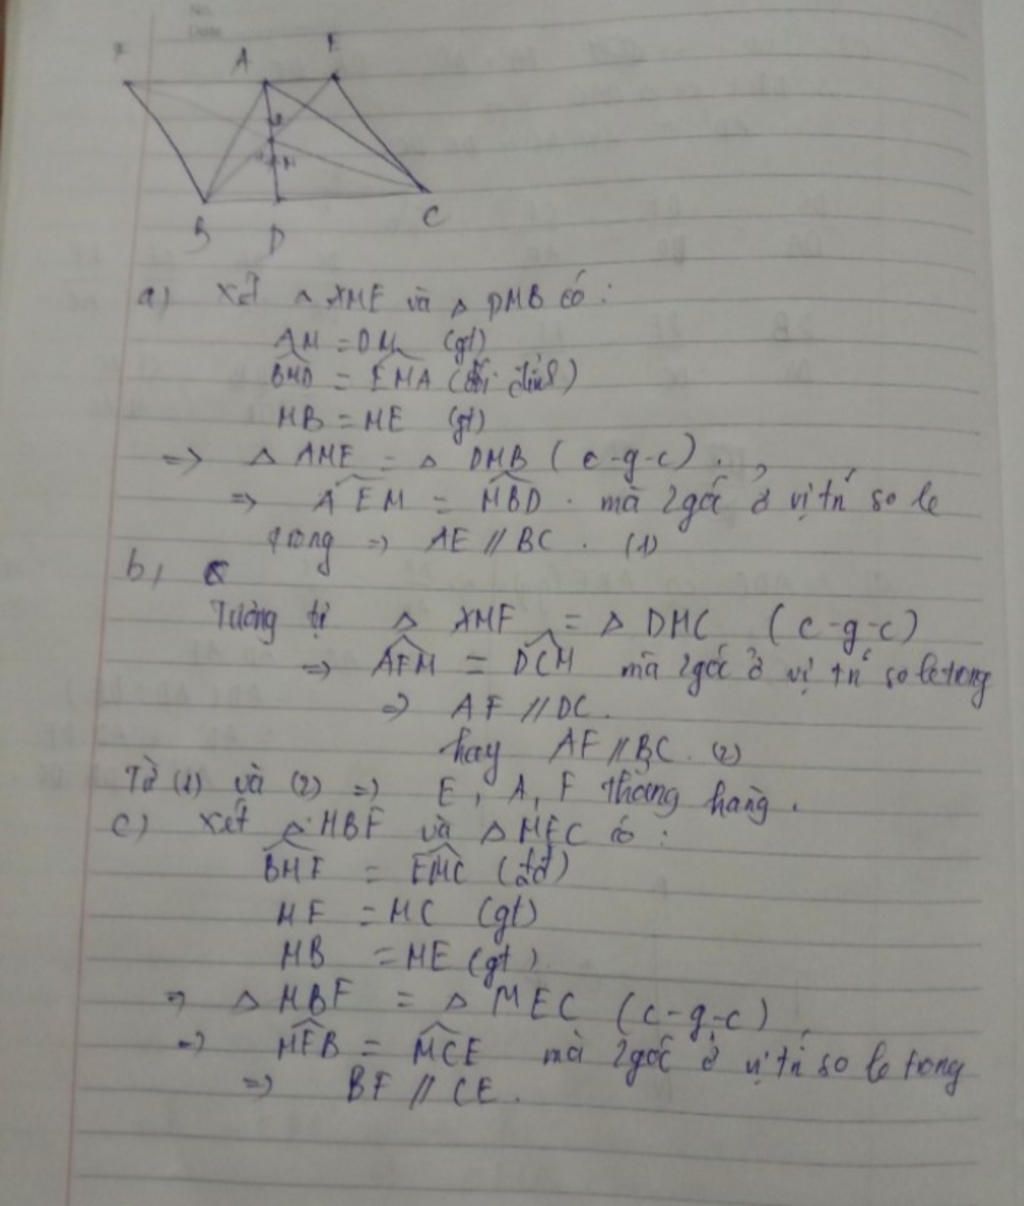 A E
B D C
a) Xét △ AME và △ DMB có :
AM = DM (gt)
BMD = EMA (đối đỉnh)
MB = ME (gt)
=> △ AME = △ DMB ( c-g-c ) .
=> AEM = MBD . mà 2 góc ở vị trí so le
trong => AE // BC . (1)
b,
Tương tự △ AMF = △ DMC ( c-g-c )
=> AFM = DCM mà 2 góc ở vị trí so le trong
=> AF // DC .
hay AF // BC . (2)
Từ (1) và (2) => E , A , F thẳng hàng .
c) Xét △ MBF và △ MEC có :
BMF = EMC (đđ)
MF = MC (gt)
MB = ME (gt)
=> △ MBF = △ MEC ( c-g-c )
=> MFB = MCE mà 2 góc ở vị trí so le trong
=> BF // CE .